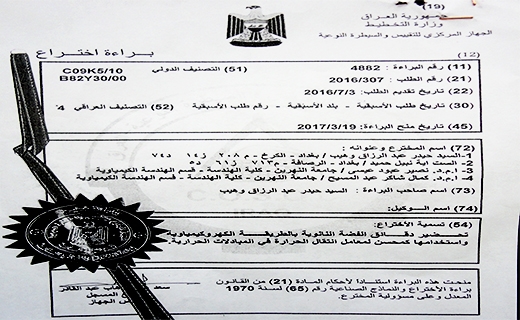 (19)
جمهورية العراق
وزارة التخطيط
الجهاز المركزي للتقييس والسيطرة النوعية
براءة اختراع
(12)
(11) رقم البراءة : 4882 (51) التصنيف الدولي C09K5/10
(21) رقم الطلب : 2016/307 B82Y30/00
(22) تاريخ تقديم الطلب : 2016/7/3
(30) تاريخ طلب الأسبقية - بلد الأسبقية - رقم طلب الأسبقية (52) التصنيف العراقي 4
(45) تاريخ منح البراءة: 2017/3/19
(72) اسم المخترع وعنوانه :
1- السيد حيدر عبد الرزاق وهيب / بغداد - الكرخ - م ٢٠٨ ز١٤ د٧٤
2- الست اية نبيل حميد / بغداد - الرصافة - م٧١٣ ز٦١
3- ا.م.د. نصير عبود عيسى / جامعة النهرين - كلية الهندسة - قسم الهندسة الكيمياوية
4- ا.م.د. كمال شاكر عبد المسيح / جامعة النهرين - كلية الهندسة - قسم الهندسة الكيمياوية
(73) اسم صاحب البراءة : السيد حيدر عبد الرزاق وهيب
(74) اسم الوكيل:
(54) تسمية الأختراع:
تحضير دقائق الفضة النانوية بالطريقة الكهروكيمياوية
واستخدامها كمحسن لمعامل انتقال الحرارة في المبادلات الحرارية.
منحت هذه البراءة استنادا لأحكام المادة (21) من القانون
براءة الأختراع والنماذج الصناعية رقم (65) لسنة 1970
المعدل وعلى مسؤولية المخترع.
سعد عبد القادر
المسجل
الجهاز